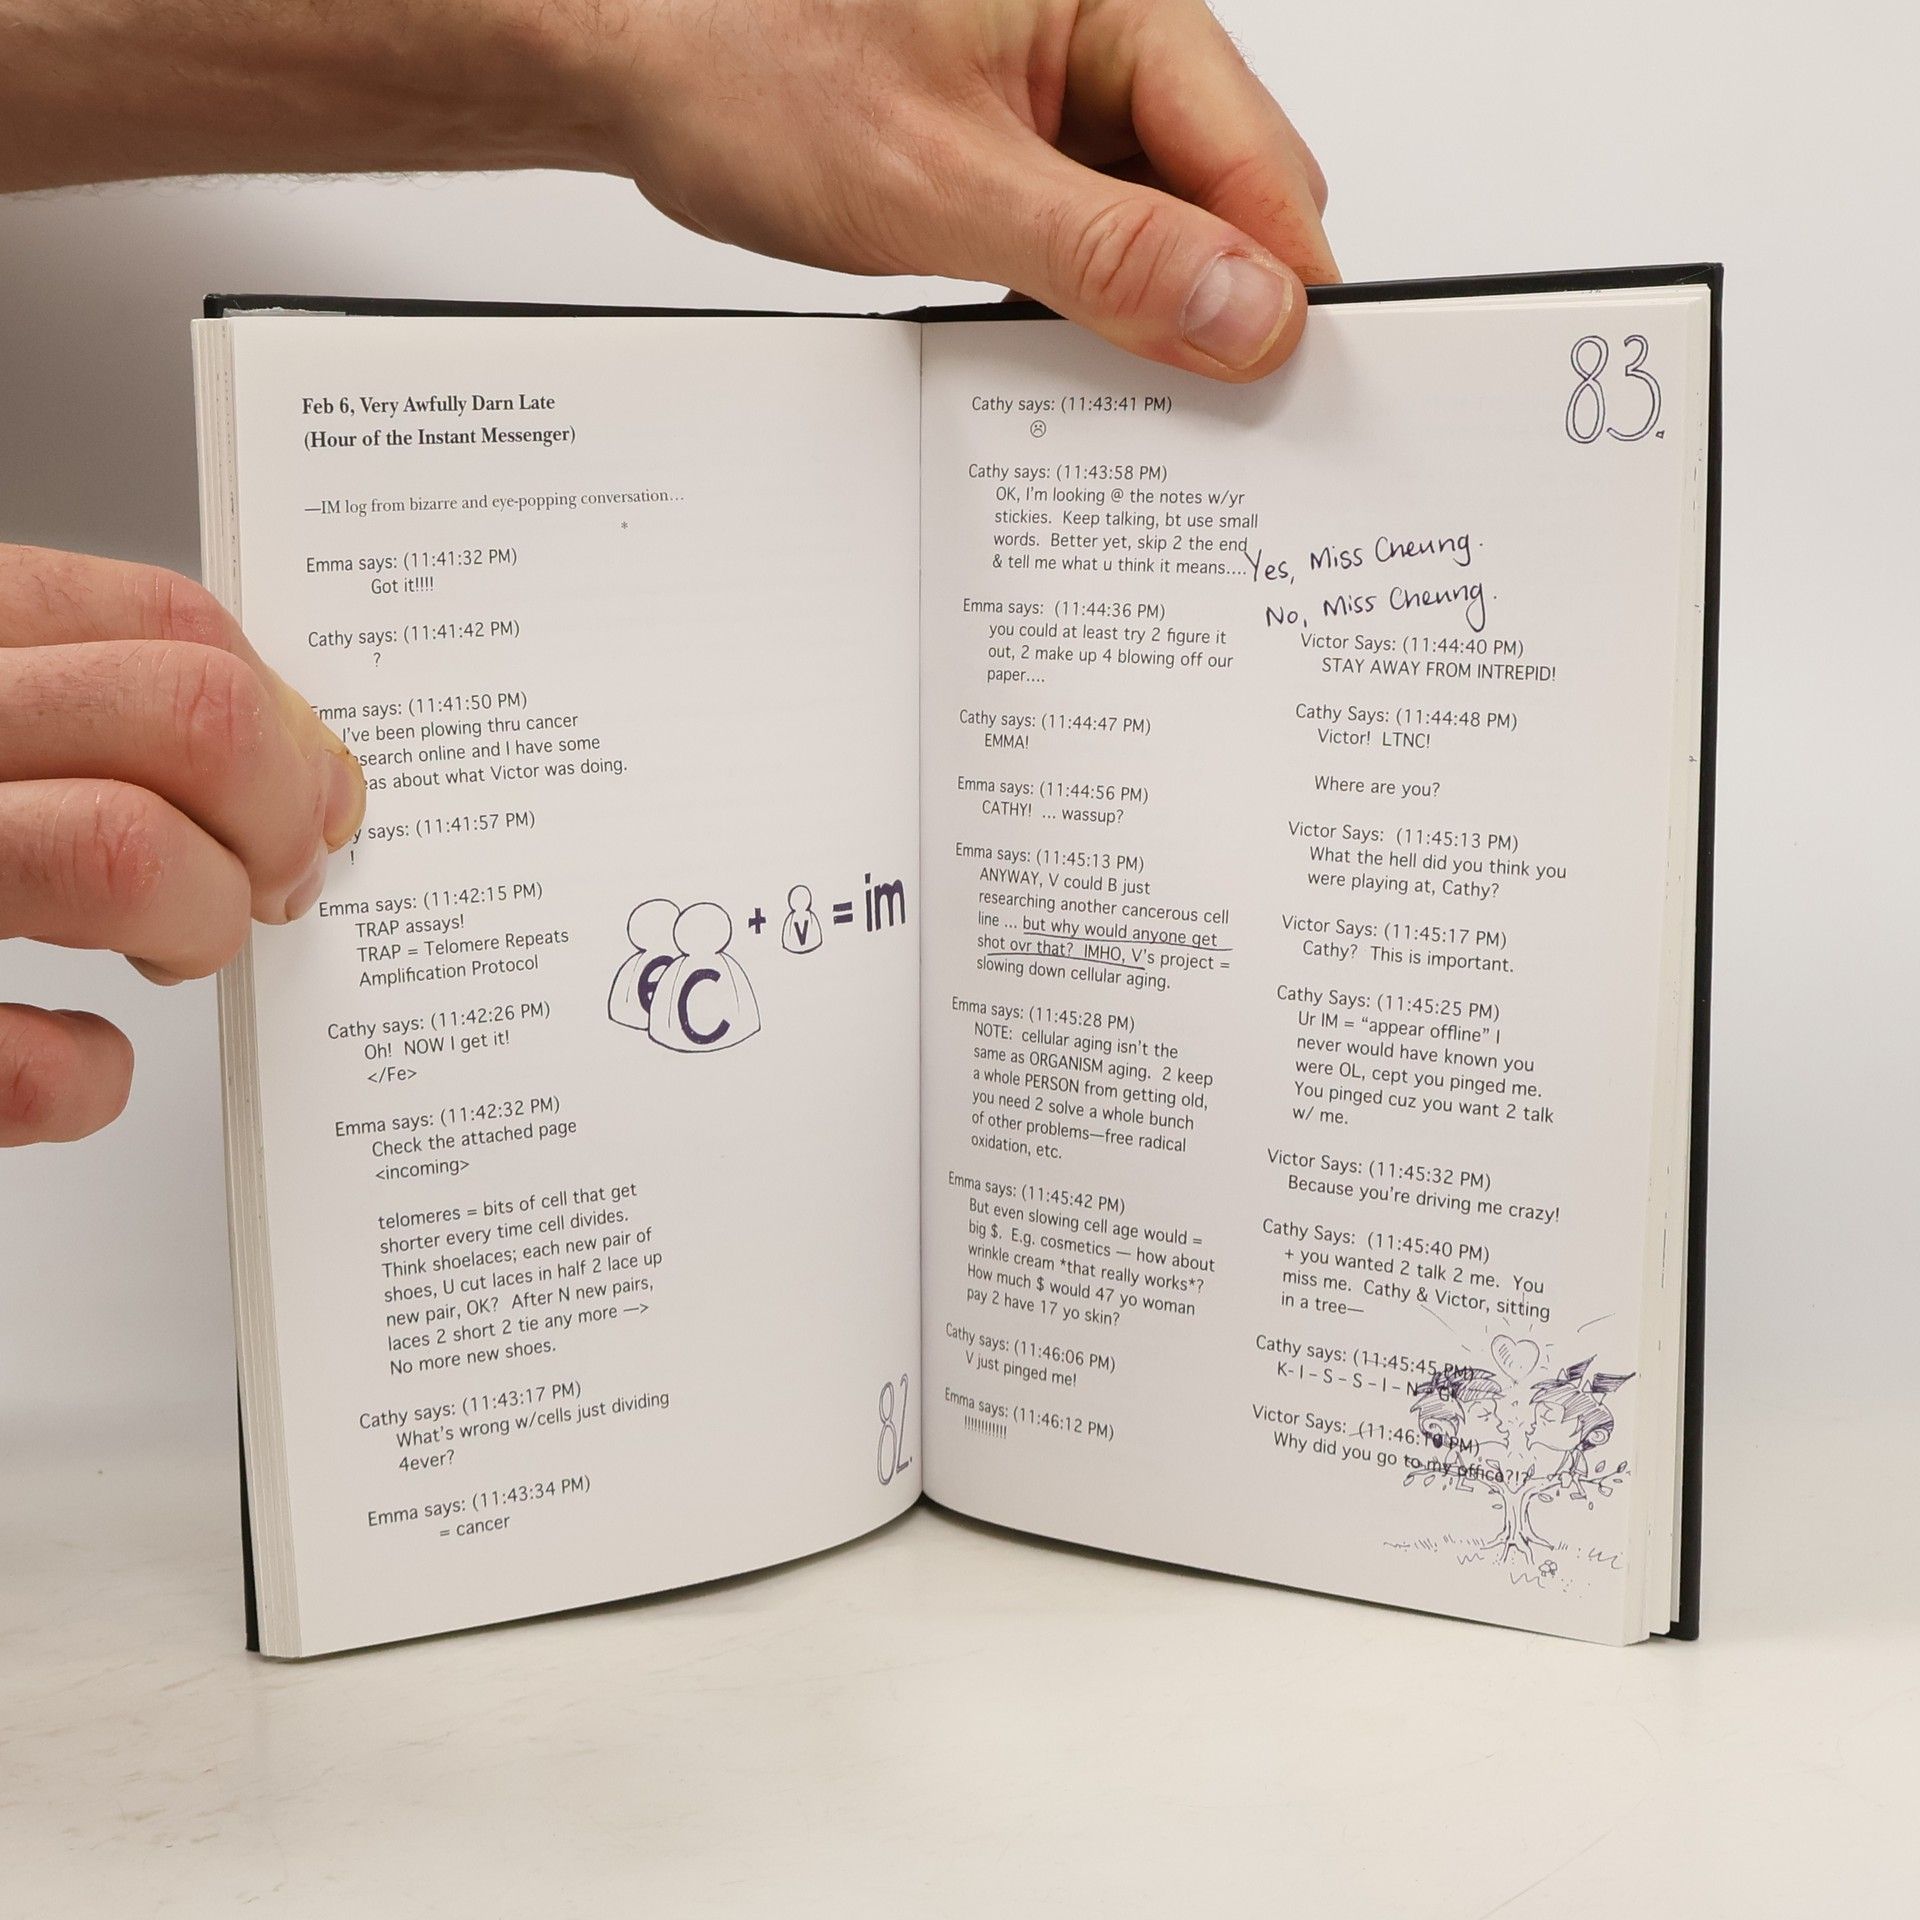 Feb 6, Very Awfully Darn Late
(Hour of the Instant Messenger)
—IM log from bizarre and eye-popping conversation…
*
Emma says: (11:41:32 PM)
Got it!!!!
Cathy says: (11:41:42 PM)
?
mma says: (11:41:50 PM)
I've been plowing thru cancer
search online and I have some
eas about what Victor was doing.
y says: (11:41:57 PM)
!
Emma says: (11:42:15 PM)
TRAP assays!
TRAP = Telomere Repeats
Amplification Protocol
Cathy says: (11:42:26 PM)
Oh!  NOW I get it!
</Fe>
Emma says: (11:42:32 PM)
Check the attached page
<incoming>
telomeres = bits of cell that get
shorter every time cell divides.
Think shoelaces; each new pair of
shoes, U cut laces in half 2 lace up
new pair, OK?  After N new pairs,
laces 2 short 2 tie any more —>
No more new shoes.
Cathy says: (11:43:17 PM)
What's wrong w/cells just dividing
4ever?
Emma says: (11:43:34 PM)
= cancer
e C + v = im
82.
83.
Cathy says: (11:43:41 PM)
☹
Cathy says: (11:43:58 PM)
OK, I'm looking @ the notes w/yr
stickies.  Keep talking, bt use small
words.  Better yet, skip 2 the end
& tell me what u think it means....
Yes, Miss Cheung.
No, Miss Cheung.
Emma says:  (11:44:36 PM)
you could at least try 2 figure it
out, 2 make up 4 blowing off our
paper....
Cathy says: (11:44:47 PM)
EMMA!
Emma says: (11:44:56 PM)
CATHY!  ... wassup?
Emma says: (11:45:13 PM)
ANYWAY, V could B just
researching another cancerous cell
line ... but why would anyone get
shot ovr that?  IMHO, V's project =
slowing down cellular aging.
Emma says: (11:45:28 PM)
NOTE:  cellular aging isn't the
same as ORGANISM aging.  2 keep
a whole PERSON from getting old,
you need 2 solve a whole bunch
of other problems—free radical
oxidation, etc.
Emma says: (11:45:42 PM)
But even slowing cell age would =
big $.  E.g. cosmetics — how about
wrinkle cream *that really works*?
How much $ would 47 yo woman
pay 2 have 17 yo skin?
Cathy says: (11:46:06 PM)
V just pinged me!
Emma says: (11:46:12 PM)
!!!!!!!!!!!!
Victor Says: (11:44:40 PM)
STAY AWAY FROM INTREPID!
Cathy Says: (11:44:48 PM)
Victor!  LTNC!
Where are you?
Victor Says:  (11:45:13 PM)
What the hell did you think you
were playing at, Cathy?
Victor Says: (11:45:17 PM)
Cathy?  This is important.
Cathy Says: (11:45:25 PM)
Ur IM = “appear offline” I
never would have known you
were OL, cept you pinged me.
You pinged cuz you want 2 talk
w/ me.
Victor Says: (11:45:32 PM)
Because you're driving me crazy!
Cathy Says:  (11:45:40 PM)
+ you wanted 2 talk 2 me.  You
miss me.  Cathy & Victor, sitting
in a tree—
Cathy says: (11:45:45 PM)
K- I – S – S – I – N – G!
Victor Says: (11:46:10 PM)
Why did you go to my office?!?